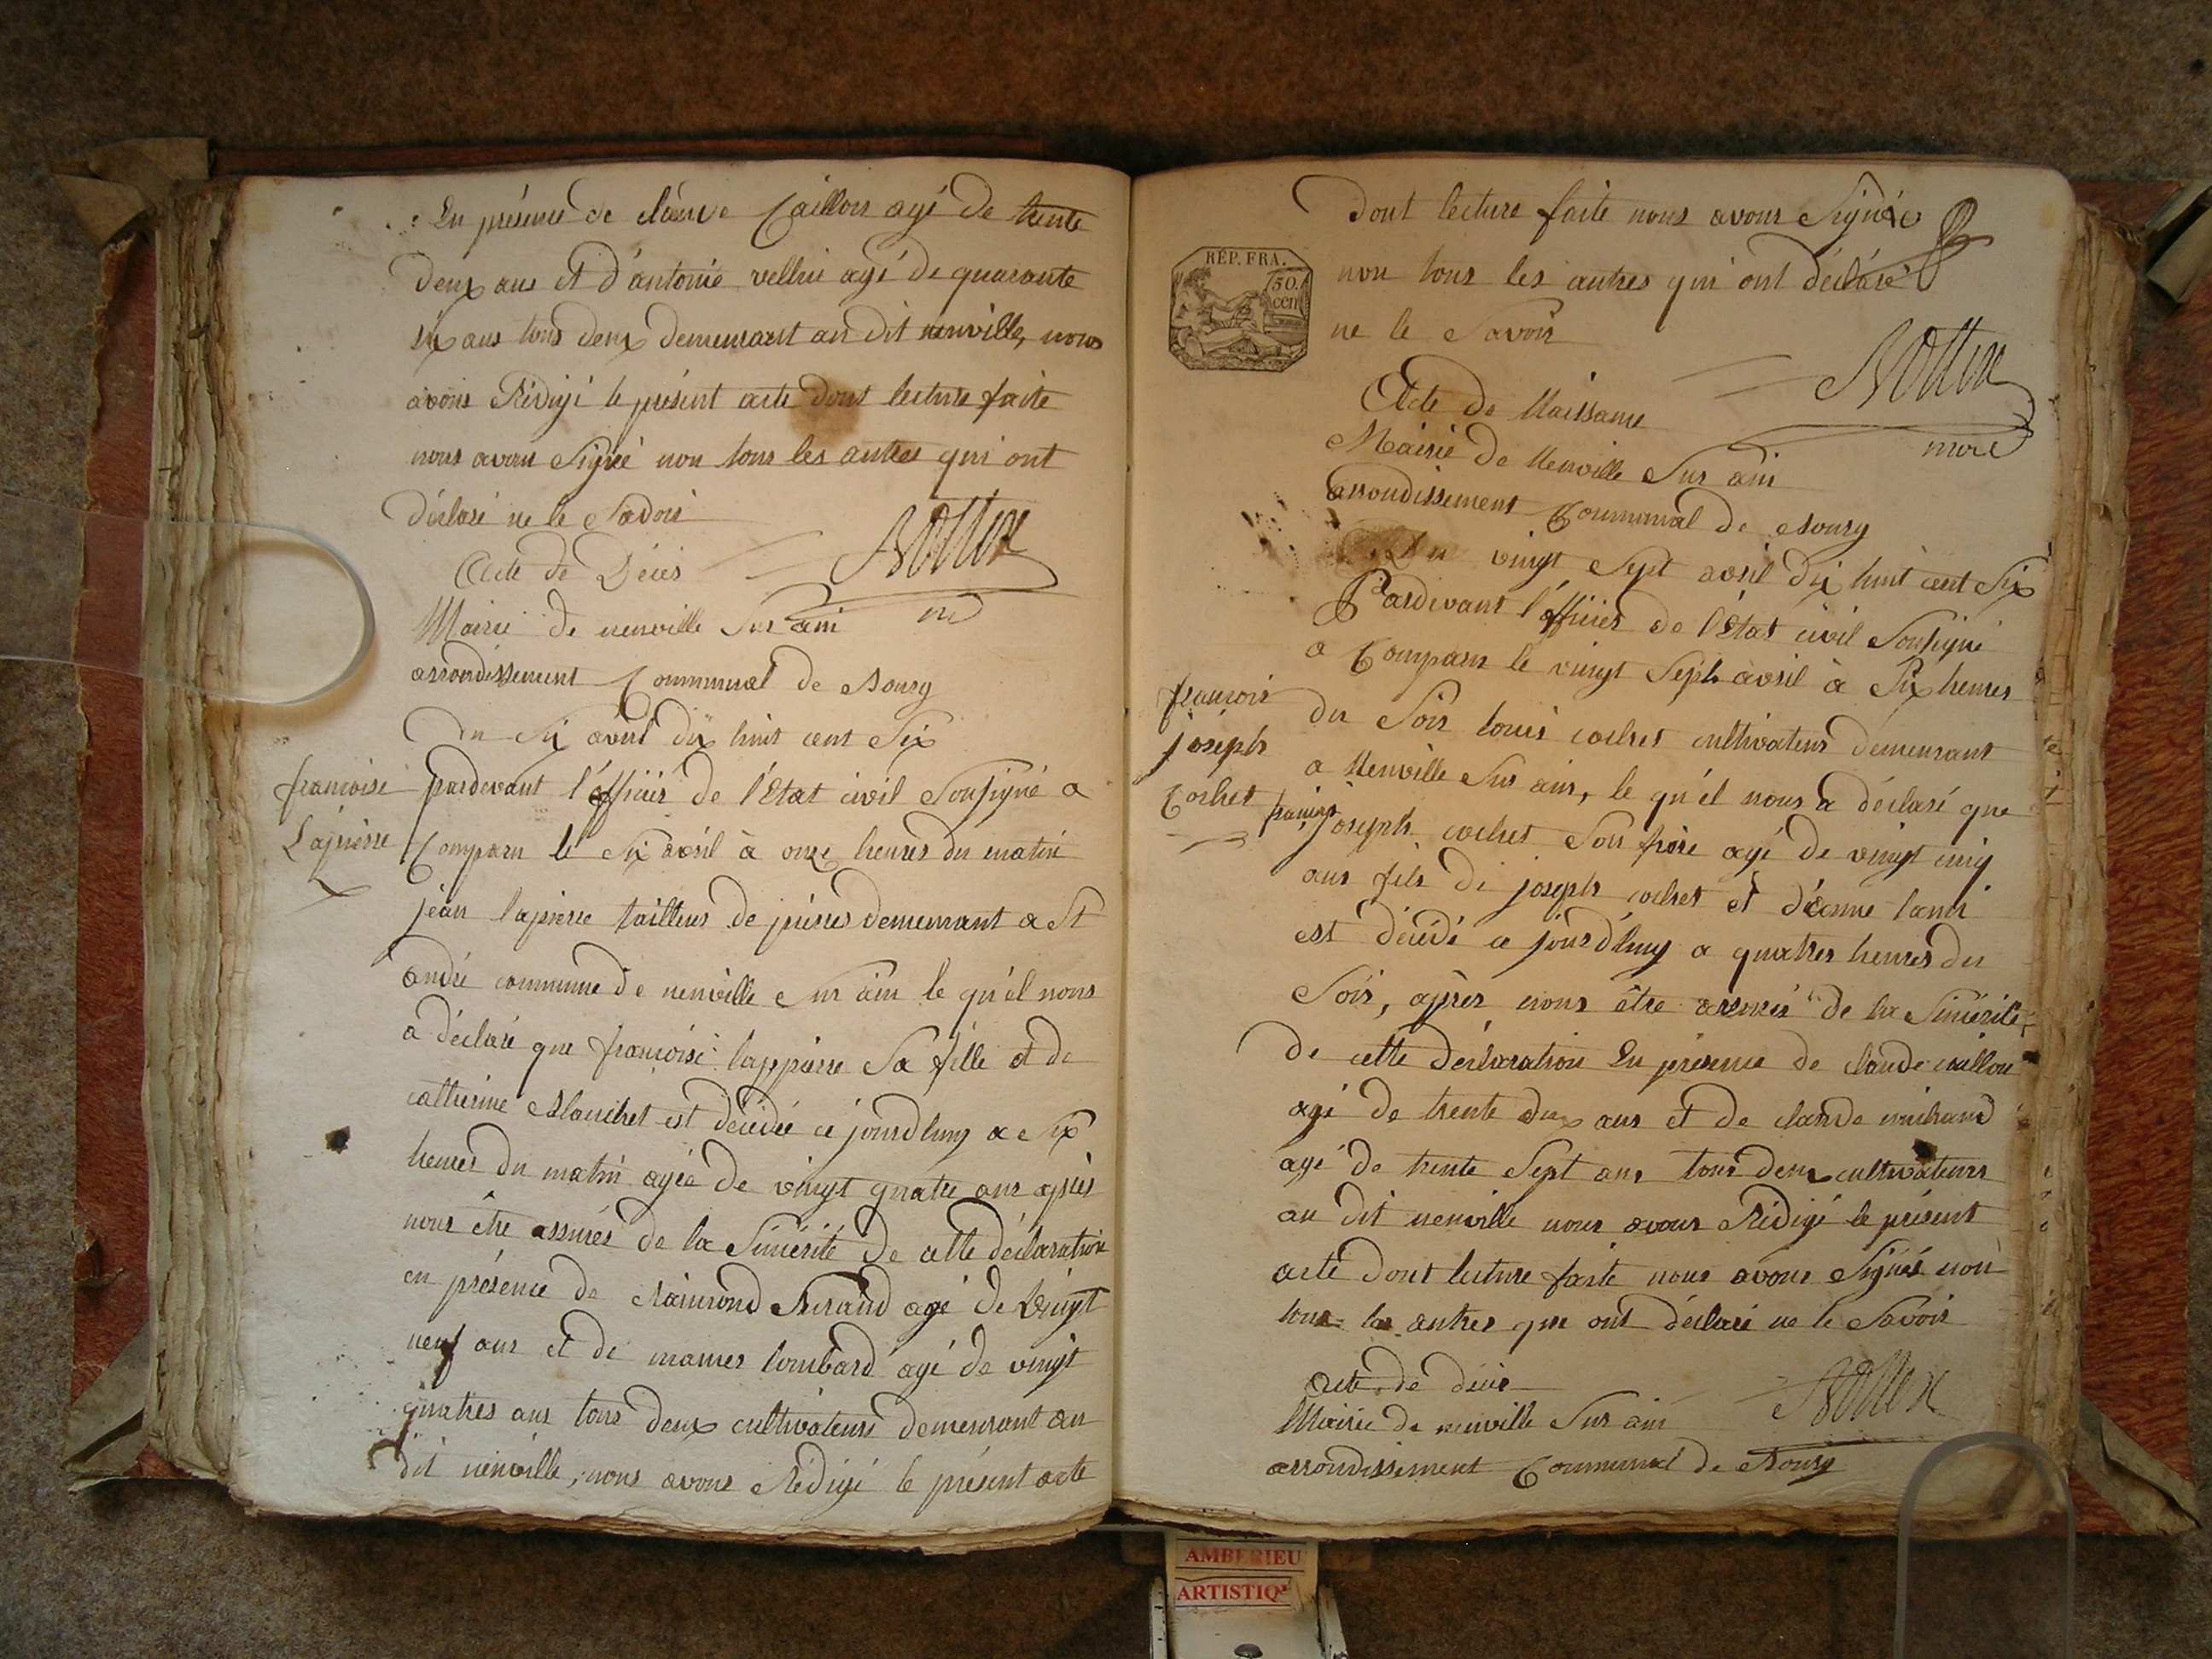 En présence de claude Caillon agé de trente
deux ans et d'antoine vellui agé de quarante
six ans tous deux demeurant au dit neuville, nous
avons Rédigé le présent acte dont lecture faite
nous avons Signé non tous les autres qui ont
déclaré ne le Savoir
Acte de Décès
Mairie de neuville Sur ain
arrondissement Communal de Bourg
du Six avril dix huit cent Six
francoise
Lapierre
pardevant l'officier de l'Etat civil Soussigné a
Comparu le Six avril à onze heures du matin
jean lapierre tailleur de pierres demeurant a St
andré commune de neuville Sur ain le qu'el nous
a déclaré que francoise lappierre Sa fille et de
catherine Blanchet est décédée ce jourd'huy a Six
heures du matin agée de vingt quatre ans après
nous être assurés de la Sincérité de cette déclaration
en présence de Raimond agé de vingt
neuf ans et de mamer lombard agé de vingt
quatres ans tous deux cultivateurs demeurant au
dit neuville, nous avons Rédigé le présent acte
dont lecture faite nous avons Signé
non tous les autres qui ont déclaré
ne le Savoir
RÉP. FRA.
50.
cen
Acte de Naissance
Mairie de Neuville Sur ain
arrondissement Communal de Bourg
Du vingt Sept avril dix huit cent Six
Pardevant l'officier de l'Etat civil Soussigné
a Comparu le vingt Sept avril à Six heures
francois
joseph
Cochet
du Soir louis cochet cultivateur demeurant
a Neuville Sur ain, le qu'él nous a déclaré que
francois joseph cochet Son frère agé de vingt cinq
ans fils de joseph cochet et d'anne
est décédé ce jourd'huy a quatres heures du
Soir, après nous être assurés de la Sincérité
de cette déclaration En présence de claude caillon
agé de trente deux ans et de claude michaud
agé de trente Sept ans tous deux cultivateurs
au dit neuville nous avons Rédigé le présent
acte dont lecture faite nous avons Signés non
tous les autres que ont déclaré ne le Savoir
acte de décè
Mairie de neuville Sur ain
arrondissement Communal de Bourg
AMBERIEU
ARTISTIQ